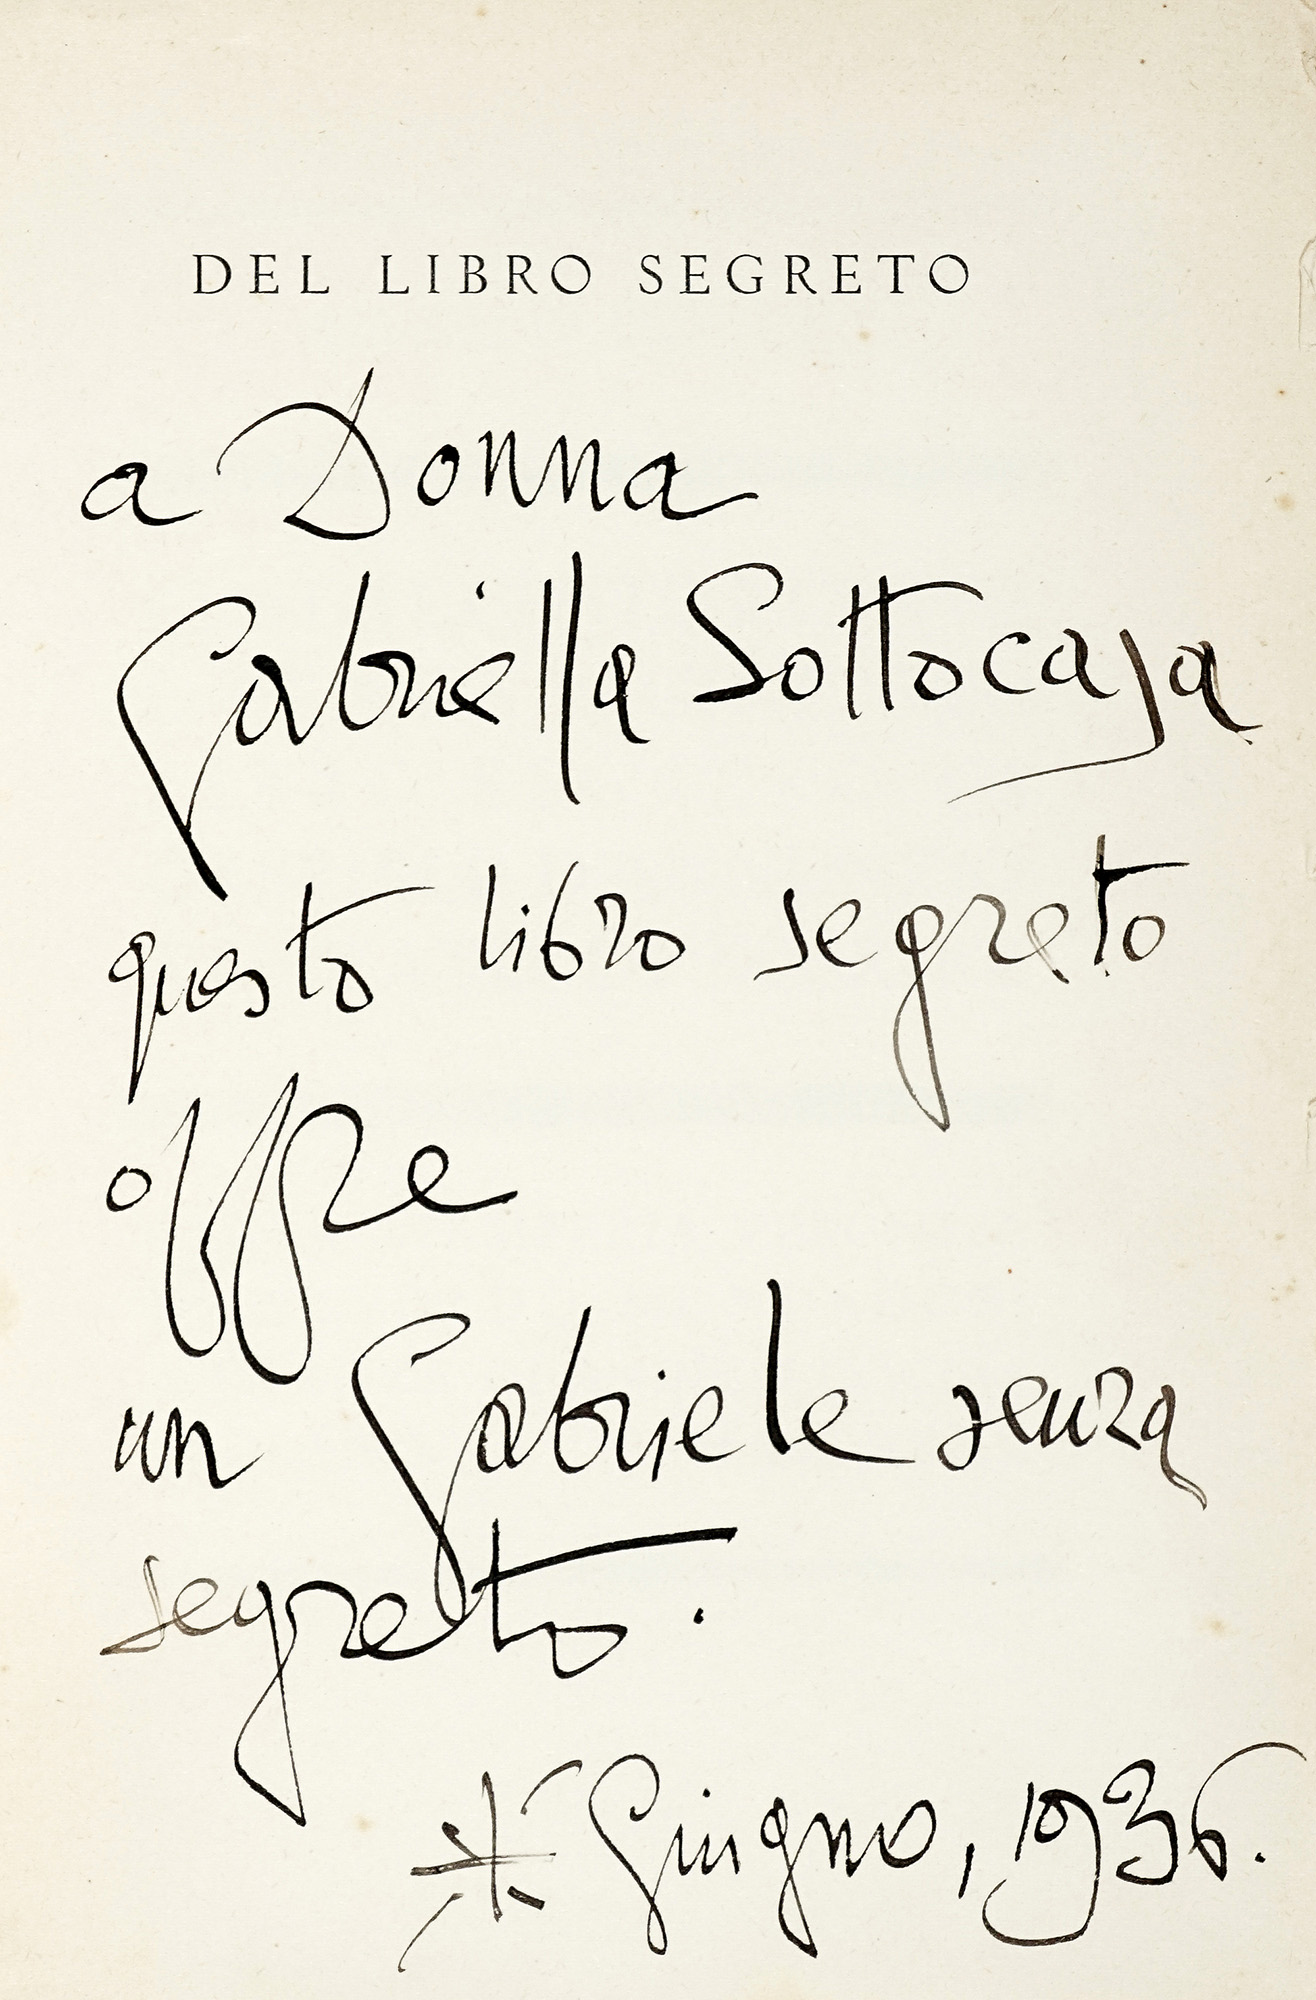 DEL LIBRO SEGRETO
a Donna
Gabriella Sottocasa
questo libro segreto
offre
un Gabriele senza
segreto.
* Giugno, 1936.